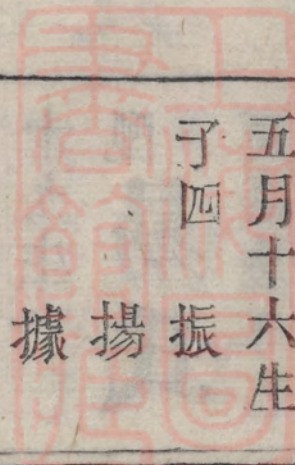 五月十六生
子四　振
揚
據